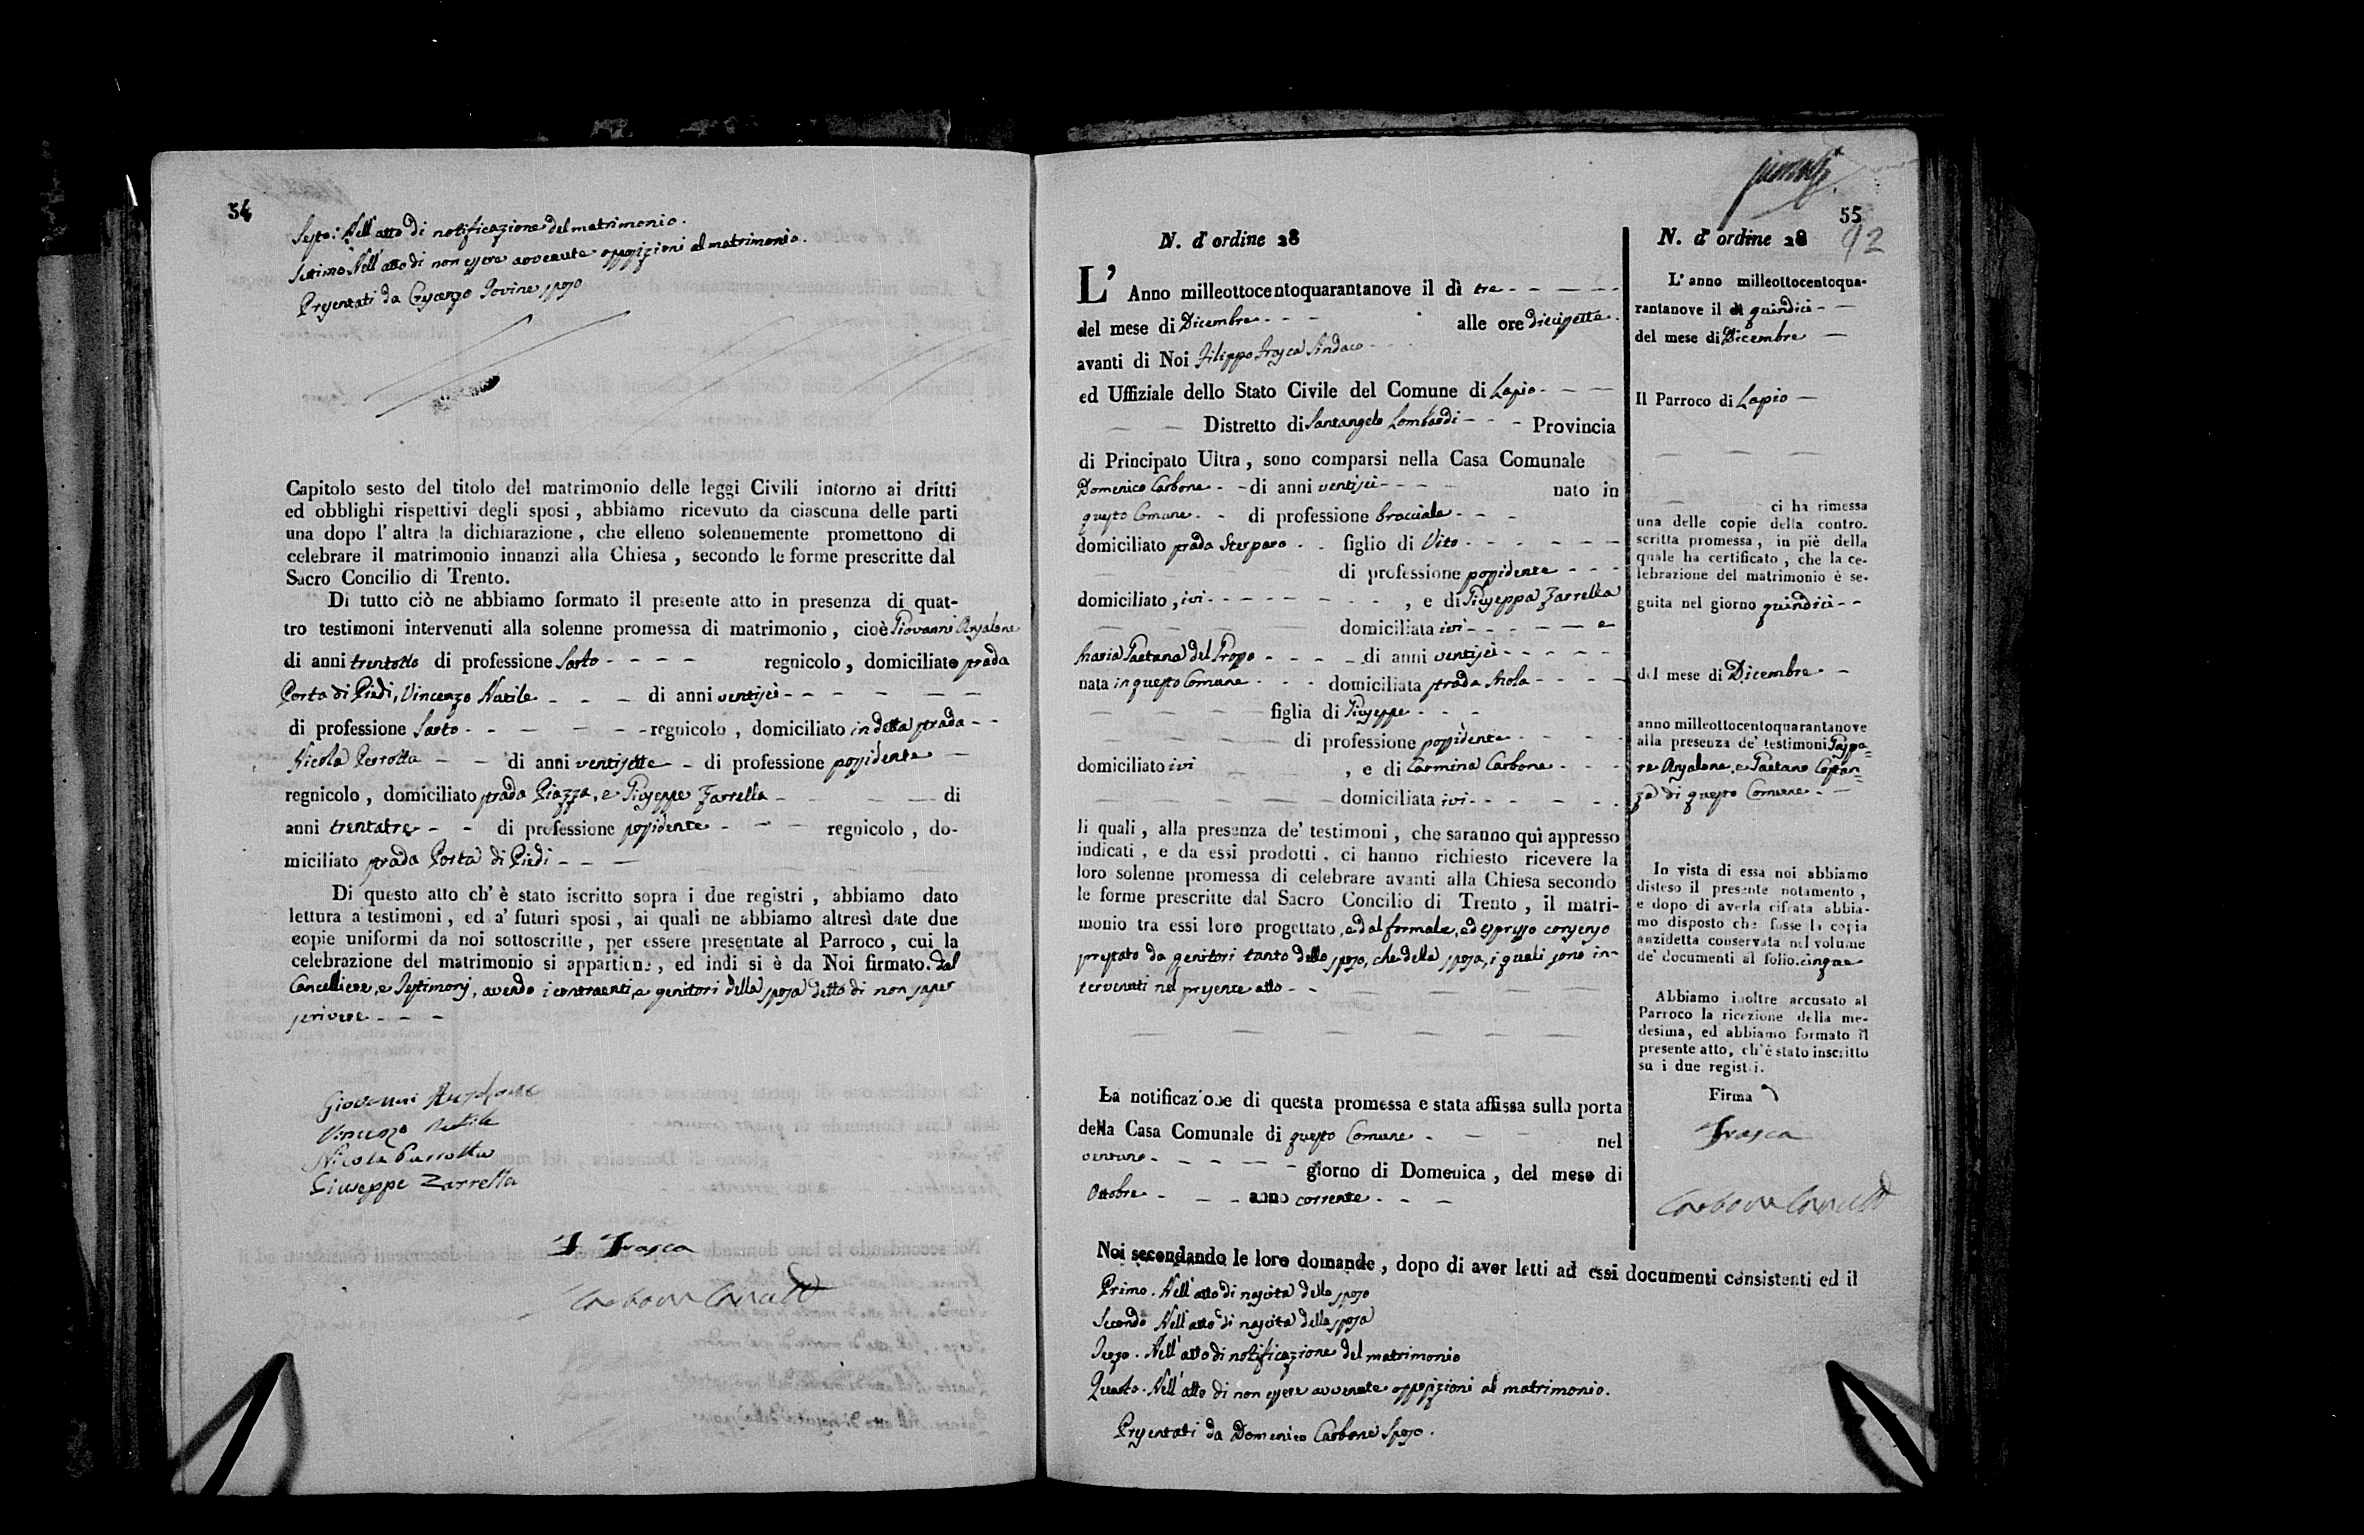 54
Sesto: Nell'atto di notificazione del matrimonio.
Settimo. Nell'atto di non essere avvenute opposizioni al matrimonio.
Presentati da Crescenzo Iovine sposo
Capitolo sesto del titolo del matrimonio delle leggi Civili intorno ai dritti
ed obblighi rispettivi degli sposi, abbiamo ricevuto da ciascuna delle parti
una dopo l'altra la dichiarazione, che elleno solennemente promettono di
celebrare il matrimonio innanzi alla Chiesa, secondo le forme prescritte dal
Sacro Concilio di Trento.
Di tutto ciò ne abbiamo formato il presente atto in presenza di quat-
tro testimoni intervenuti alla solenne promessa di matrimonio, cioè Giovanni Anzalone
di anni trentotto di professione Sarto - - - - regnicolo, domiciliato strada
Porta di Piedi, Vincenzo Natile - - - di anni ventisei - - - - - -
di professione Sarto - - - - - regnicolo, domiciliato in detta strada - -
Nicola Perrotta - - di anni ventisette - di professione possidente -
regnicolo, domiciliato strada Piazza, e Giuseppe Zarrella - - - - di
anni trentatre - - di professione possidente - - - regnicolo, do-
miciliato strada Porta di Piedi - - -
Di questo atto ch'è stato iscritto sopra i due registri, abbiamo dato
lettura a' testimoni, ed a' futuri sposi, ai quali ne abbiamo altresì date due
copie uniformi da noi sottoscritte, per essere presentate al Parroco, cui la
celebrazione del matrimonio si appartiene, ed indi si è da Noi firmato. dal
Cancelliere, e Testimonj, avendo i contraenti, e genitori della sposa detto di non saper
scrivere - - -
Giovanni Anzalone
Vincenzo Natile
Nicola Parrotta
Giuseppe Zarrella
F Frasca
55
92
N. d'ordine 28
L'Anno milleottocentoquarantanove il dì tre - - - - -
del mese di Dicembre - - - alle ore diecisette.
avanti di Noi Filippo Frasca Sindaco - - -
ed Uffiziale dello Stato Civile del Comune di Lapio - - -
- - Distretto di Santangelo Lombardi - - - Provincia
di Principato Ultra, sono comparsi nella Casa Comunale
Domenico Carbone - - di anni ventisei - - - - nato in
questo Comune - - di professione bracciale - - -
domiciliato strada Sterparo - - figlio di Vito - - - - - -
di professione possidente - - -
domiciliato, ivi - - - - - - - -, e di Giuseppa Zarrella
domiciliata ivi - - - - - e
Maria Gaetana del Propo - - - - di anni ventisei - - - - -
nata in questo Comune - - - domiciliata strada Mola - - - -
- - - - figlia di Giuseppe - - -
- - - - di professione possidente - - - -
domiciliato ivi , e di Carmina Carbone - - -
- - - - - domiciliata ivi - - - - - -
li quali, alla presenza de' testimoni, che saranno quì appresso
indicati, e da essi prodotti, ci hanno richiesto ricevere la
loro solenne promessa di celebrare avanti alla Chiesa secondo
le forme prescritte dal Sacro Concilio di Trento, il matri-
monio tra essi loro progettato, ed al formale, ed espresso consenso
prestato da genitori tanto dello sposo, che della sposa, i quali sono in-
tervenuti nel presente atto - -
La notificazione di questa promessa e stata affissa sulla porta
della Casa Comunale di questo Comune - - - nel
ventuno - - - - - - giorno di Domenica, del mese di
Ottobre - - - anno corrente - - -
Noi secondando le loro domande, dopo di aver letti ad essi documenti consistenti ed il
Primo. Nell'atto di nascita dello sposo
Secondo Nell'atto di nascita della sposa
Terzo. Nell'atto di notificazione del matrimonio
Quarto. Nell'atto di non essere avvenute opposizioni al matrimonio.
Presentati da Domenico Carbone Sposo.
N. d'ordine 28
L'anno milleottocentoqua-
rantanove il dì quindici - -
del mese di Dicembre -
Il Parroco di Lapio -
ci ha rimessa
una delle copie della contro-
scritta promessa, in piè della
quale ha certificato, che la ce-
lebrazione del matrimonio è se-
guita nel giorno quindici - -
del mese di Dicembre - -
anno milleottocentoquarantanove
alla presenza de' testimoni Gaspa-
re Anzalone, e Gaetano Costan-
za di questo Comune - -
In vista di essa noi abbiamo
disteso il presente notamento,
e dopo di averla cifrata abbia-
mo disposto che fosse la copia
anzidetta conservata nel volume
de' documenti al folio cinque
Abbiamo inoltre accusato al
Parroco la ricezione della me-
desima, ed abbiamo formato il
presente atto, ch'è stato inscritto
su i due registri.
Firma
Frasca